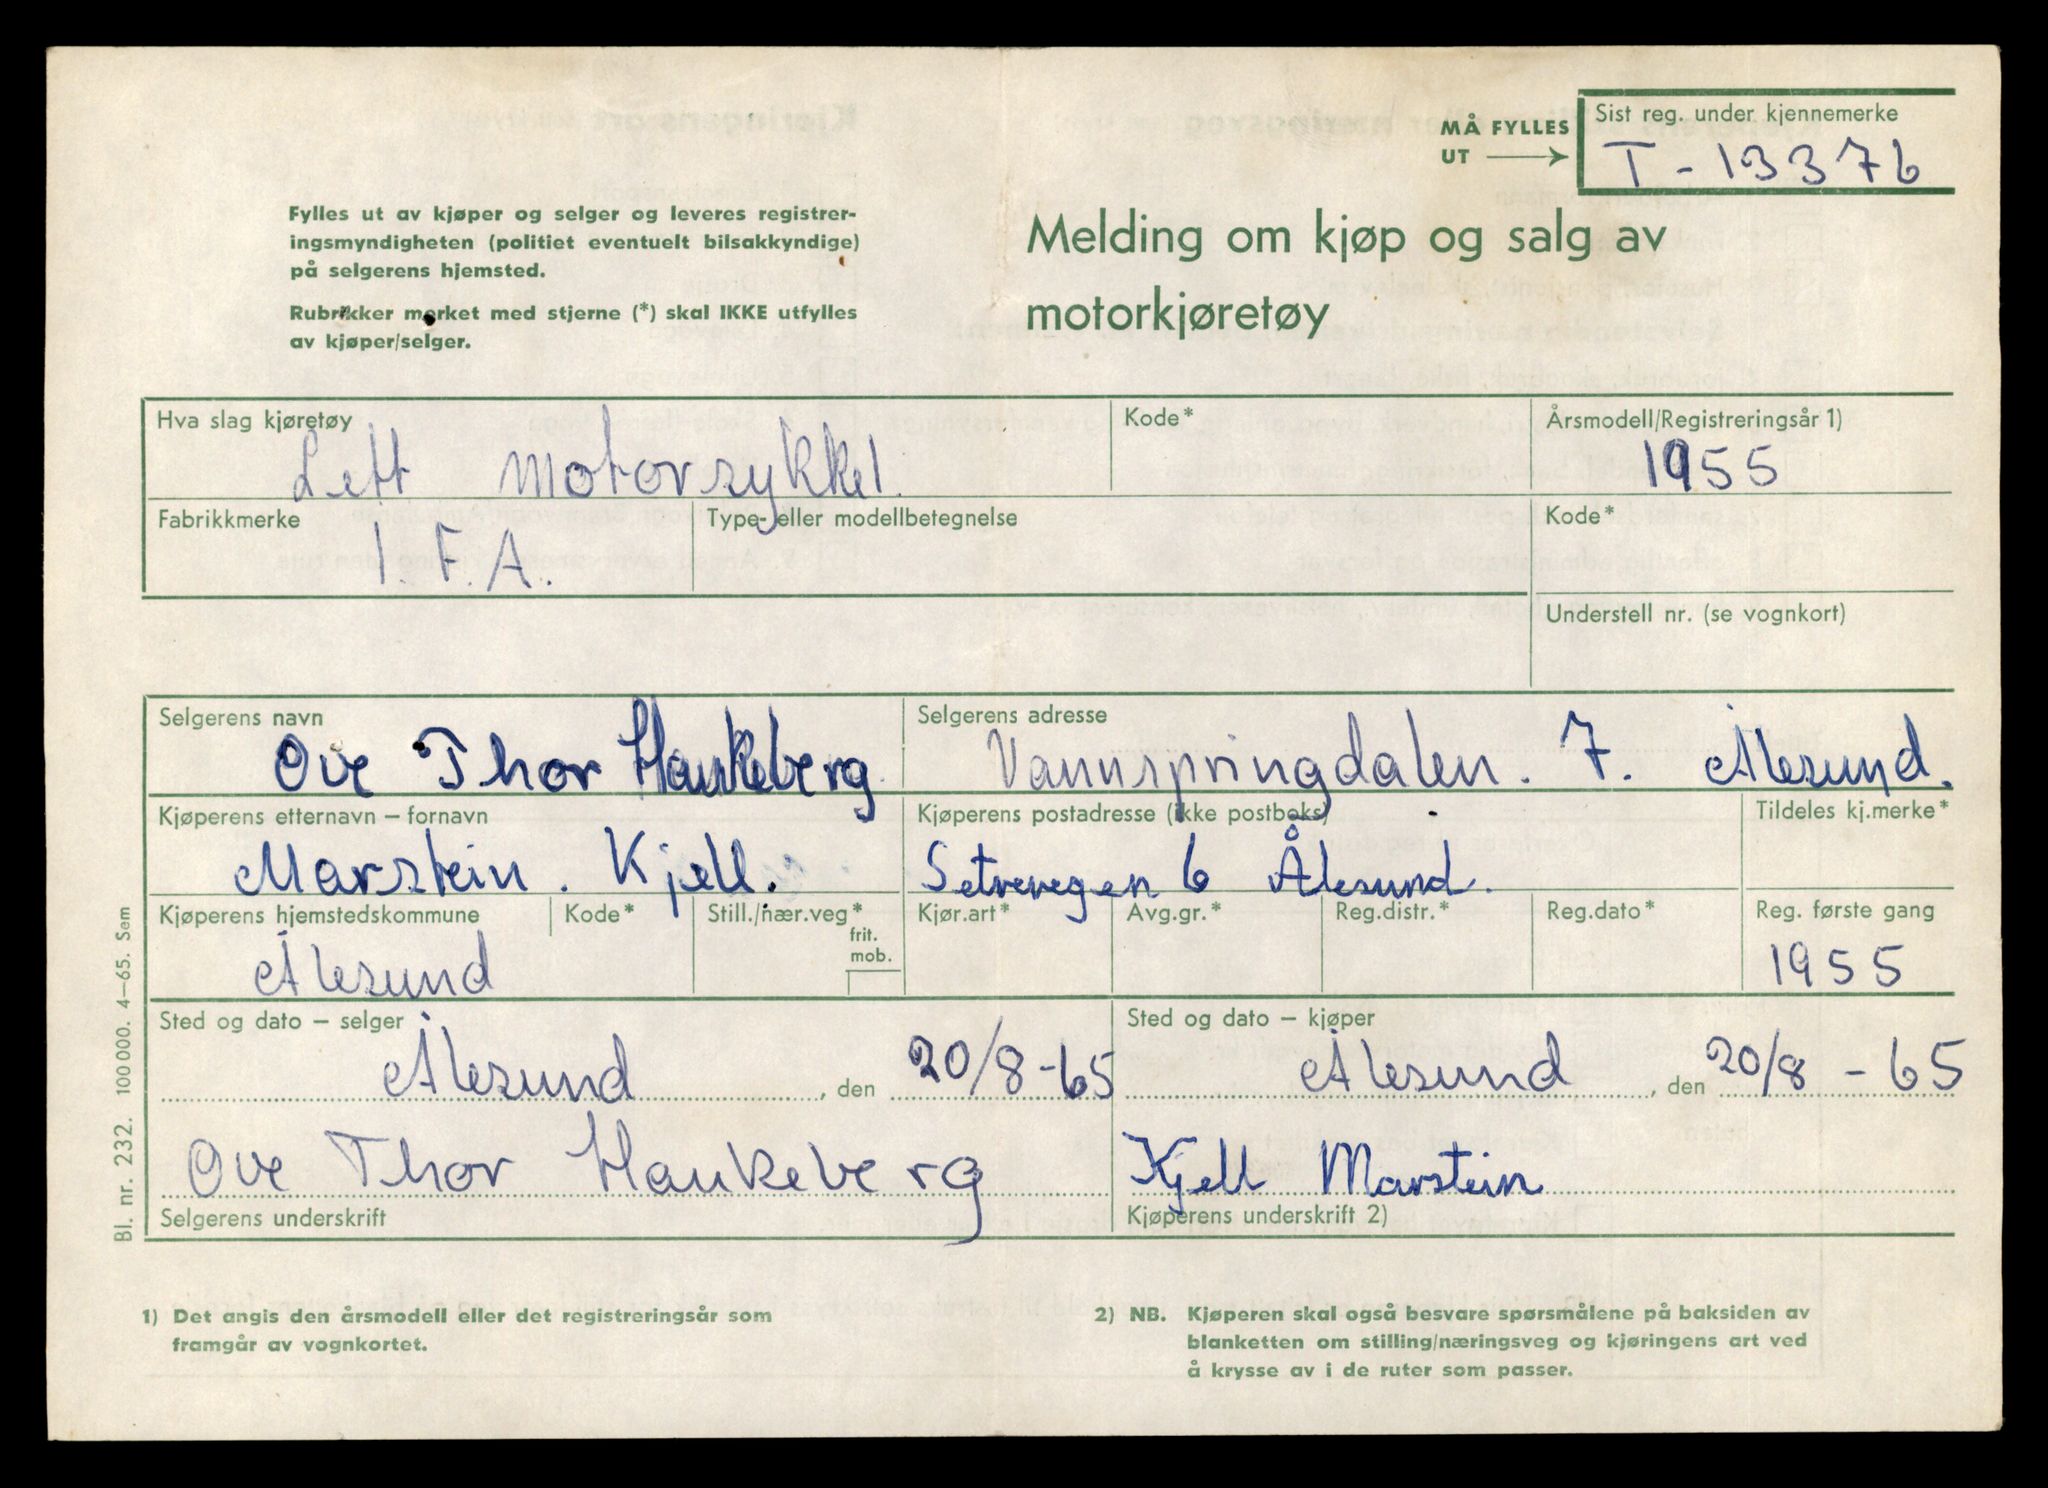 MÅ FYLLES
UT
Sist reg. under kjennemerke
T - 13376
Fylles ut av kjøper og selger og leveres registrer-
ingsmyndigheten (politiet eventuelt bilsakkyndige)
på selgerens hjemsted.
Rubrikker merket med stjerne (*) skal IKKE utfylles
av kjøper/selger.
Melding om kjøp og salg av
motorkjøretøy
Hva slag kjøretøy
Lett motorsykkel.
Kode*
Årsmodell/Registreringsår 1)
1955
Fabrikkmerke
I. F. A.
Type- eller modellbetegnelse
Kode*
Understell nr. (se vognkort)
Selgerens navn
Ove Thor Haukeberg
Selgerens adresse
Vannspringdalen. 7. Ålesund.
Kjøperens etternavn – fornavn
Marstein. Kjell.
Kjøperens postadresse (ikke postboks)
Setrevegen 6 Ålesund.
Tildeles kj.merke*
Kjøperens hjemstedskommune
Ålesund
Kode*
Still./nær.veg*
frit.
mob.
Kjør.art*
Avg.gr.*
Reg.distr.*
Reg.dato*
Reg. første gang
1955
Sted og dato – selger
Ålesund, den 20/8-65
Sted og dato – kjøper
Ålesund, den 20/8 - 65
Ove Thor Haukeberg
Selgerens underskrift
Kjell Marstein
Kjøperens underskrift 2)
Bl. nr. 232. 100 000. 4–65. Sem
1) Det angis den årsmodell eller det registreringsår som
framgår av vognkortet.
2) NB. Kjøperen skal også besvare spørsmålene på baksiden av
blanketten om stilling/næringsveg og kjøringens art ved
å krysse av i de ruter som passer.